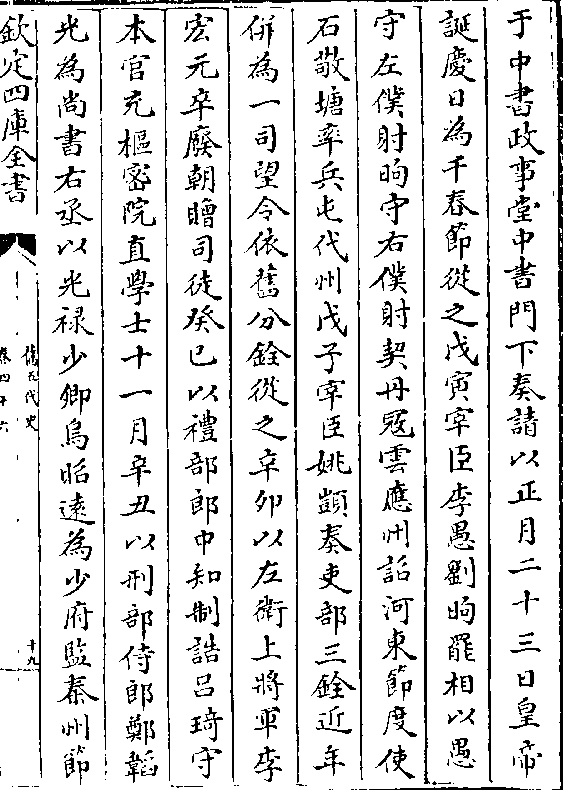 于中書政事堂中書門下奏請以正月二十三日皇帝
誕慶日為千春節從之戊寅宰臣李愚劉昫罷相以愚
守左僕射昫守右僕射契丹宼雲應州詔河東節度使
石敬塘率兵屯代州戊子宰臣姚顗奏吏部三銓近年
併為一司望令依舊分銓從之辛卯以左衛上將軍李
宏元卒廢朝贈司徒癸巳以禮部郎中知制誥吕琦守
本官充樞密院直學士十一月辛丑以刑部侍郎鄭韜
光為尚書右丞以光禄少卿烏昭遠為少府監秦州節
欽定四庫全書
舊五代史
卷四十六
十九